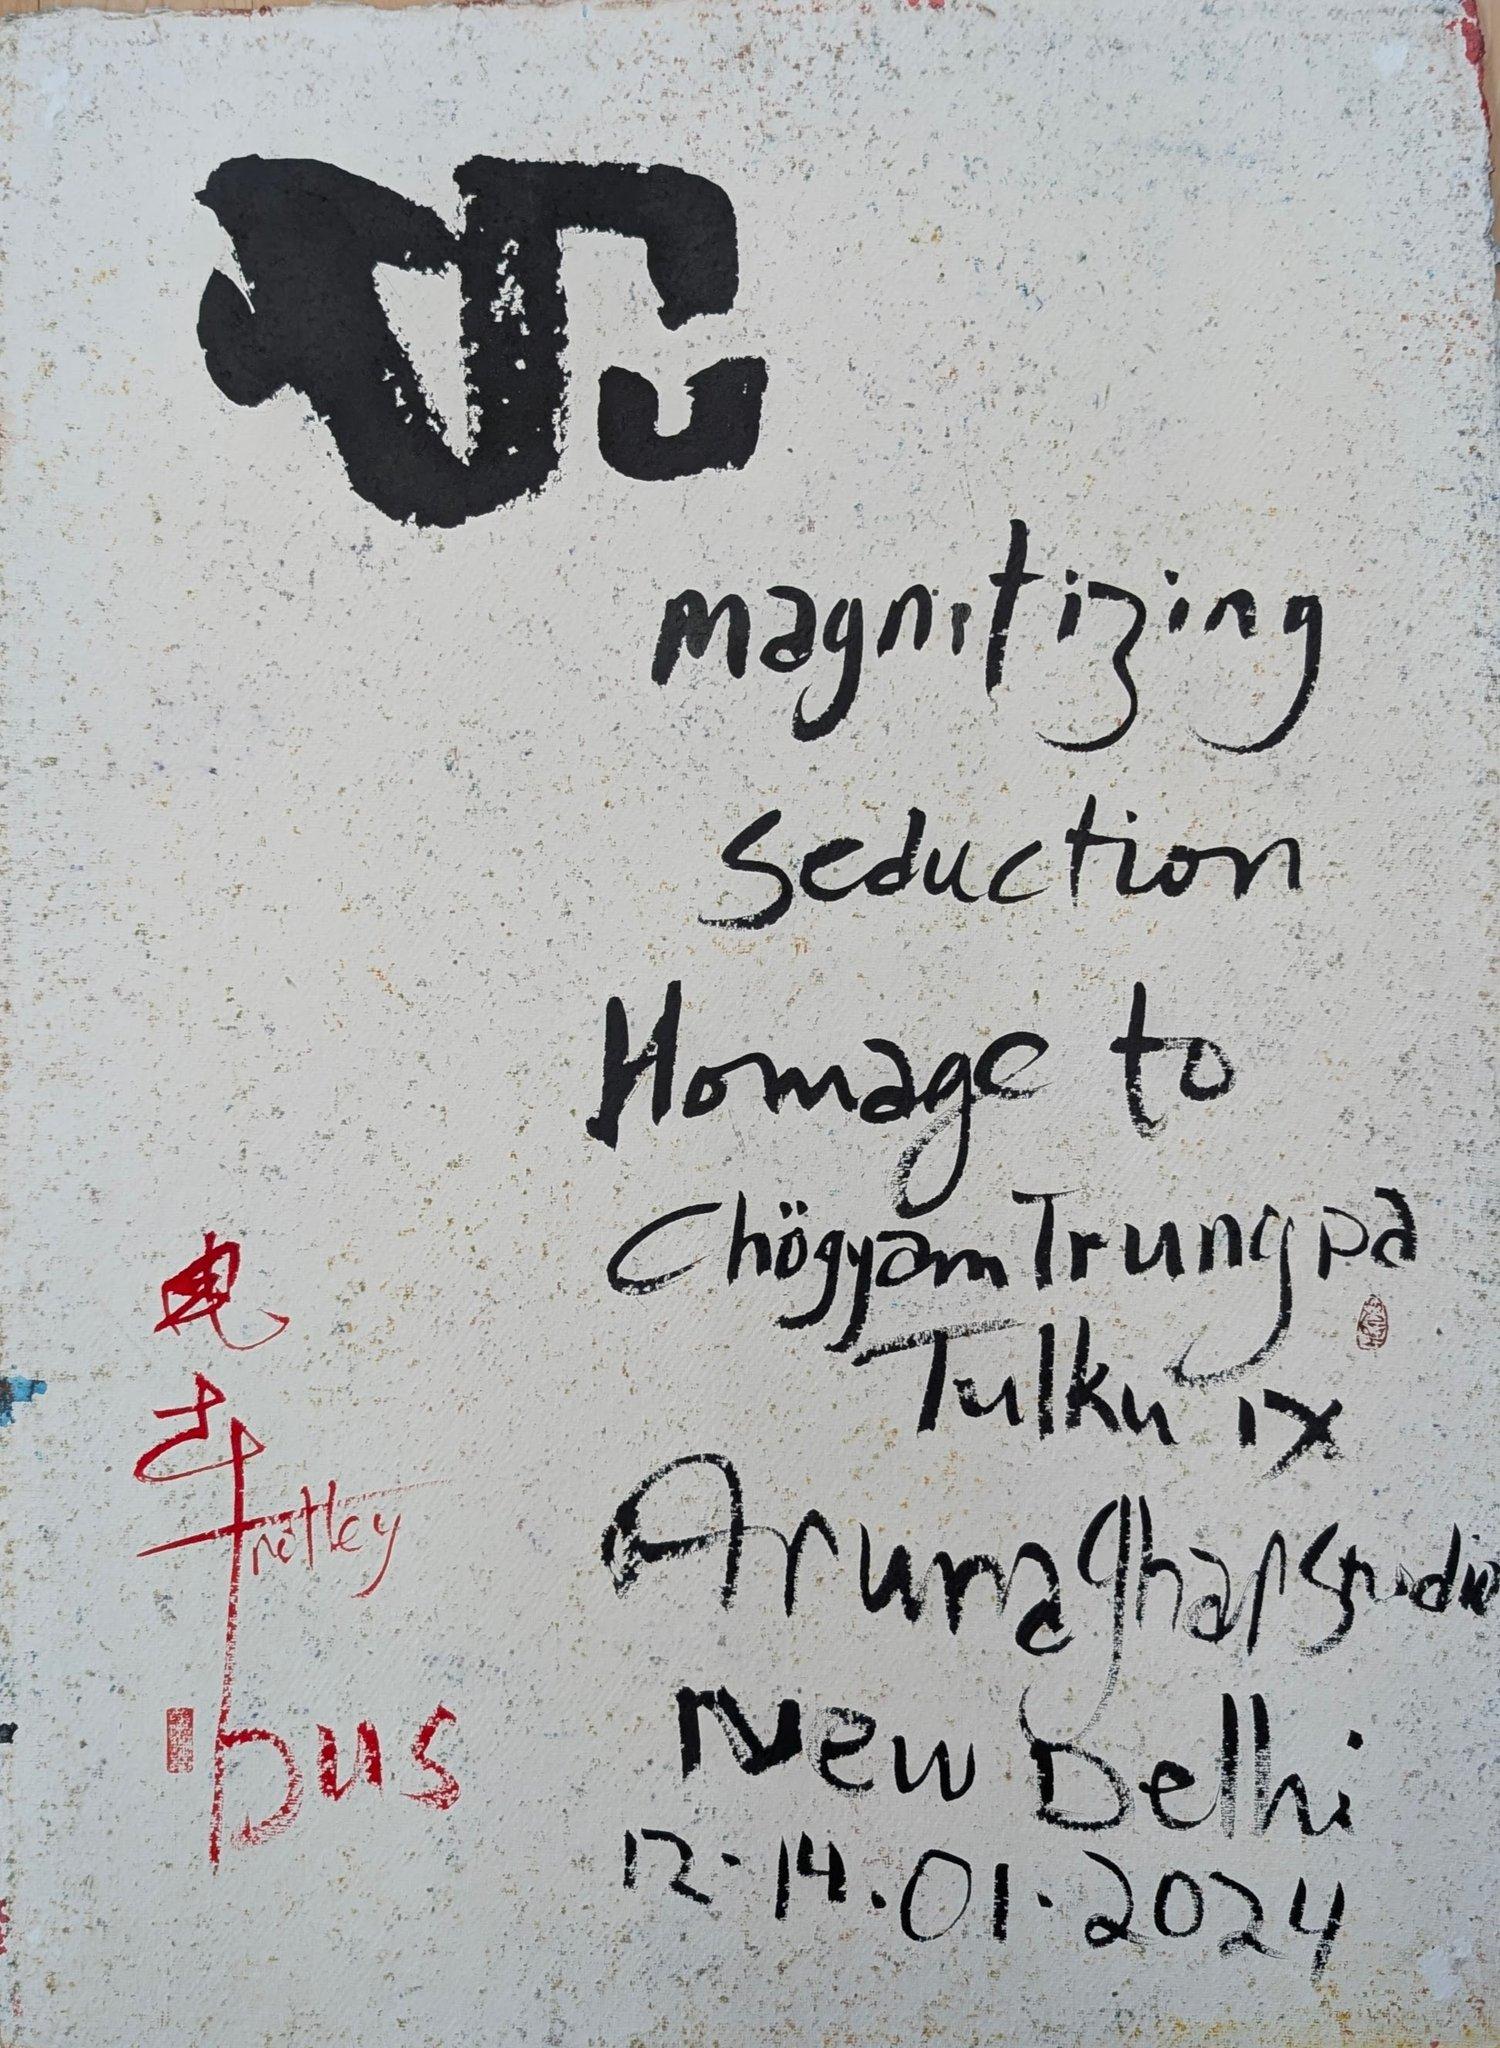 magnitizing
seduction
Homage to
Chögyam Trungpa
Tulku IX
Arunaghar Studio
New Delhi
12-14.01.2024
电
车
trolley
bus